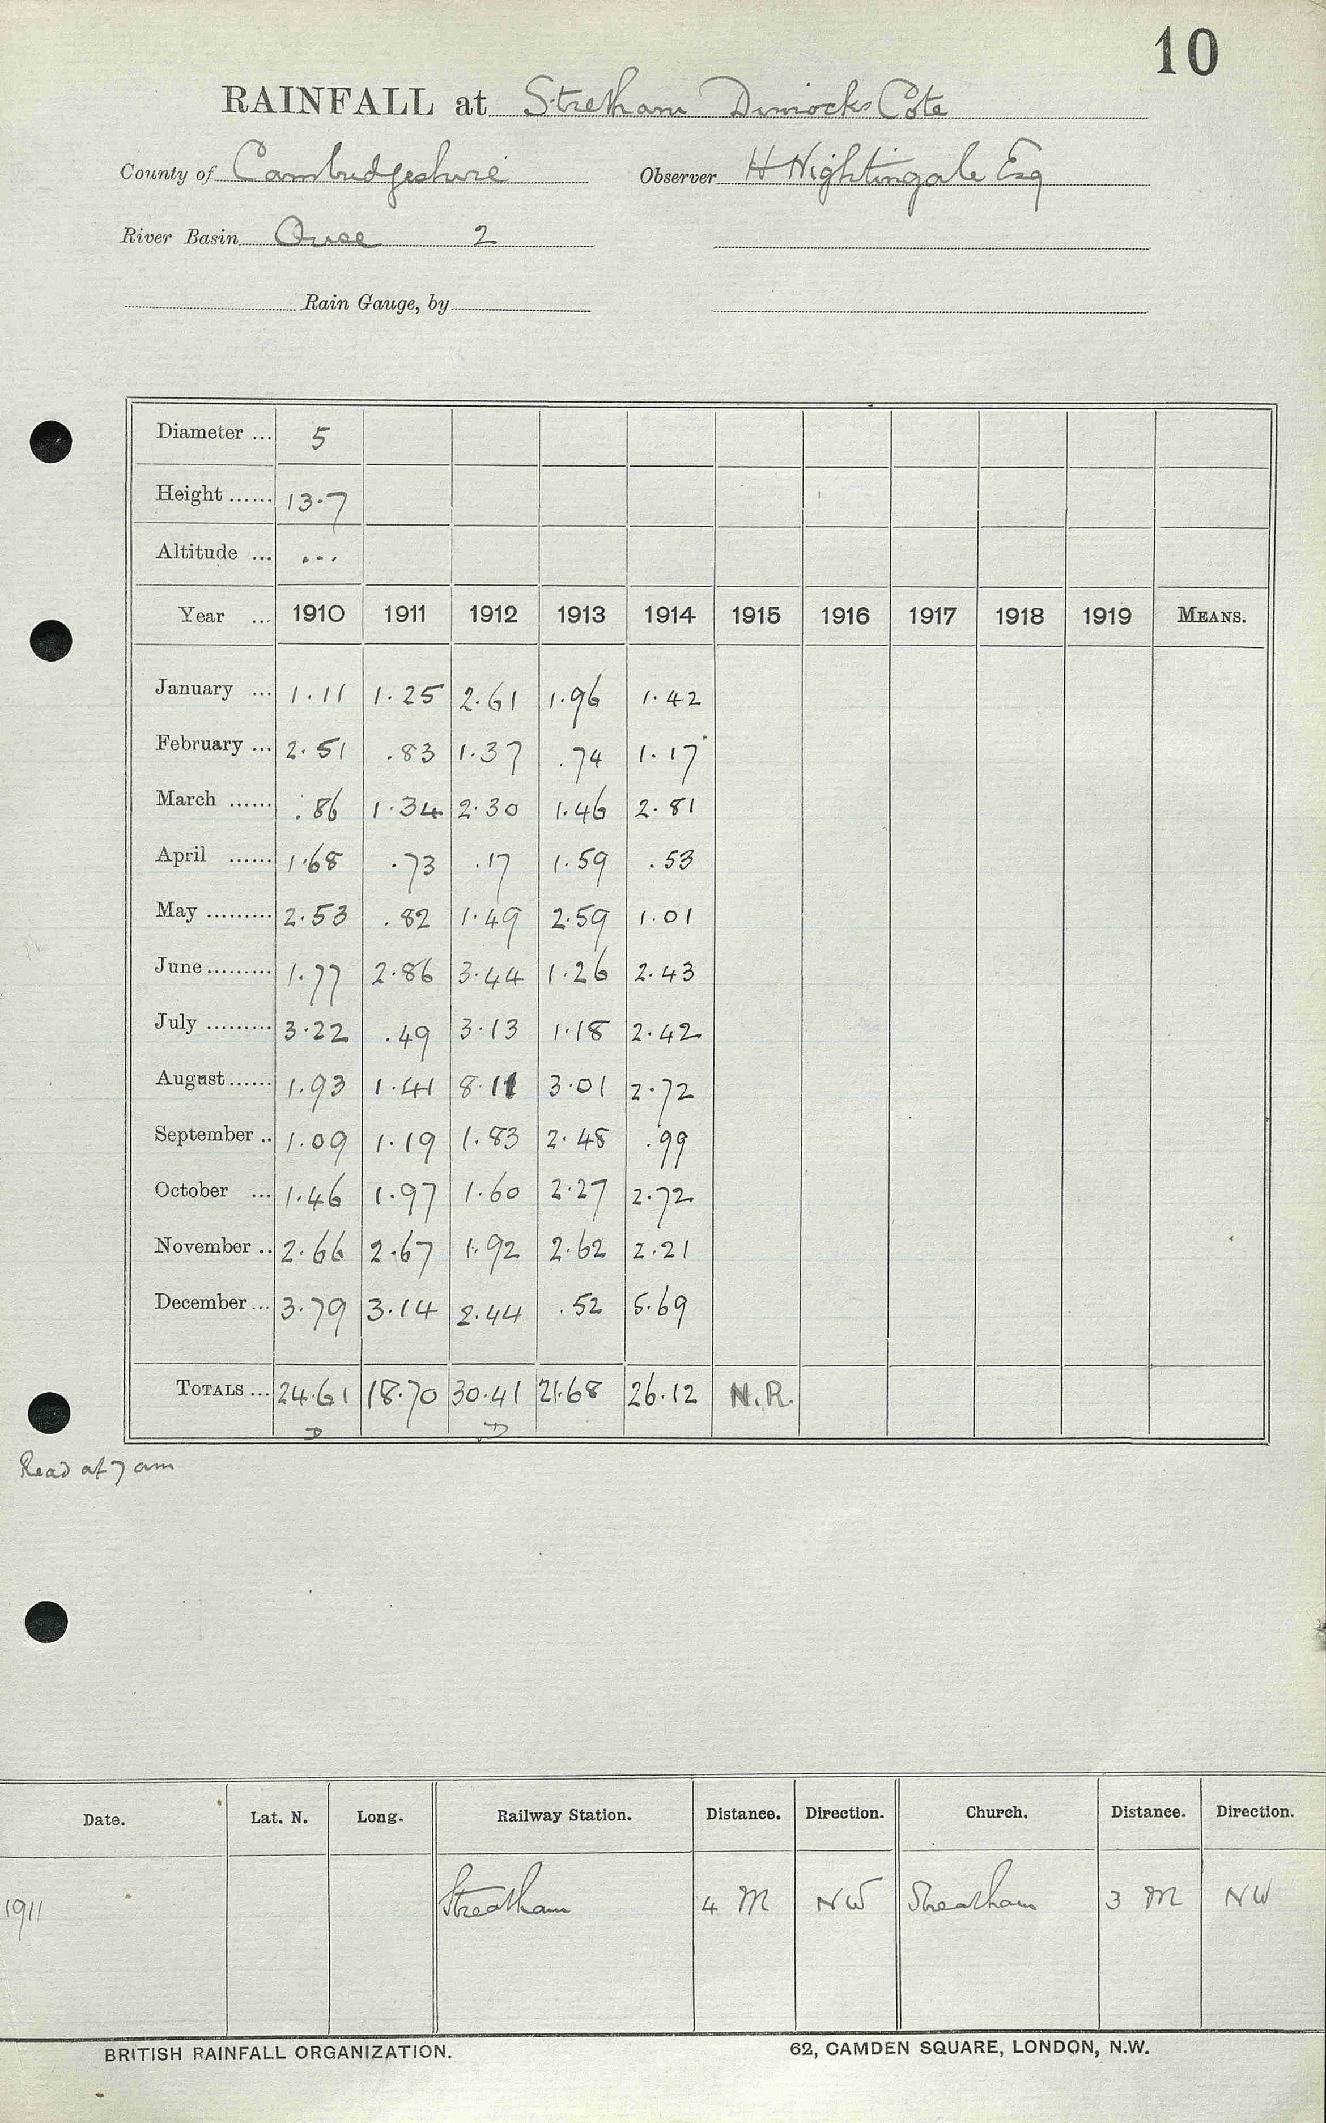 10
RAINFALL at Stretham Dimocks Cote
County of Cambridgeshire Observer H Nightingale Esq
River Basin Ouse 2
Rain Gauge, by
Diameter ... 5
Height ...... 13.7
Altitude ... ...
Year ... 1910 1911 1912 1913 1914 1915 1916 1917 1918 1919 MEANS.
January ... 1.11 1.25 2.61 1.96 1.42
February ... 2.51 .83 1.37 .74 1.17
March ...... .86 1.34 2.30 1.46 2.81
April ...... 1.68 .73 .17 1.59 .53
May ......... 2.53 .82 1.49 2.59 1.01
June ......... 1.77 2.86 3.44 1.26 2.43
July ......... 3.22 .49 3.13 1.18 2.42
August ...... 1.93 1.41 8.11 3.01 2.72
September .. 1.09 1.19 1.83 2.48 .99
October ... 1.46 1.97 1.60 2.27 2.72
November .. 2.66 2.67 1.92 2.62 2.21
December ... 3.79 3.14 2.44 .52 5.69
TOTALS ... 24.61 18.70 30.41 21.68 26.12 N.R.
D D
Read at 7 am
Date. Lat. N. Long. Railway Station. Distance. Direction. Church. Distance. Direction.
1911 Streatham 4 M NW Streatham 3 M NW
BRITISH RAINFALL ORGANIZATION. 62, CAMDEN SQUARE, LONDON, N.W.